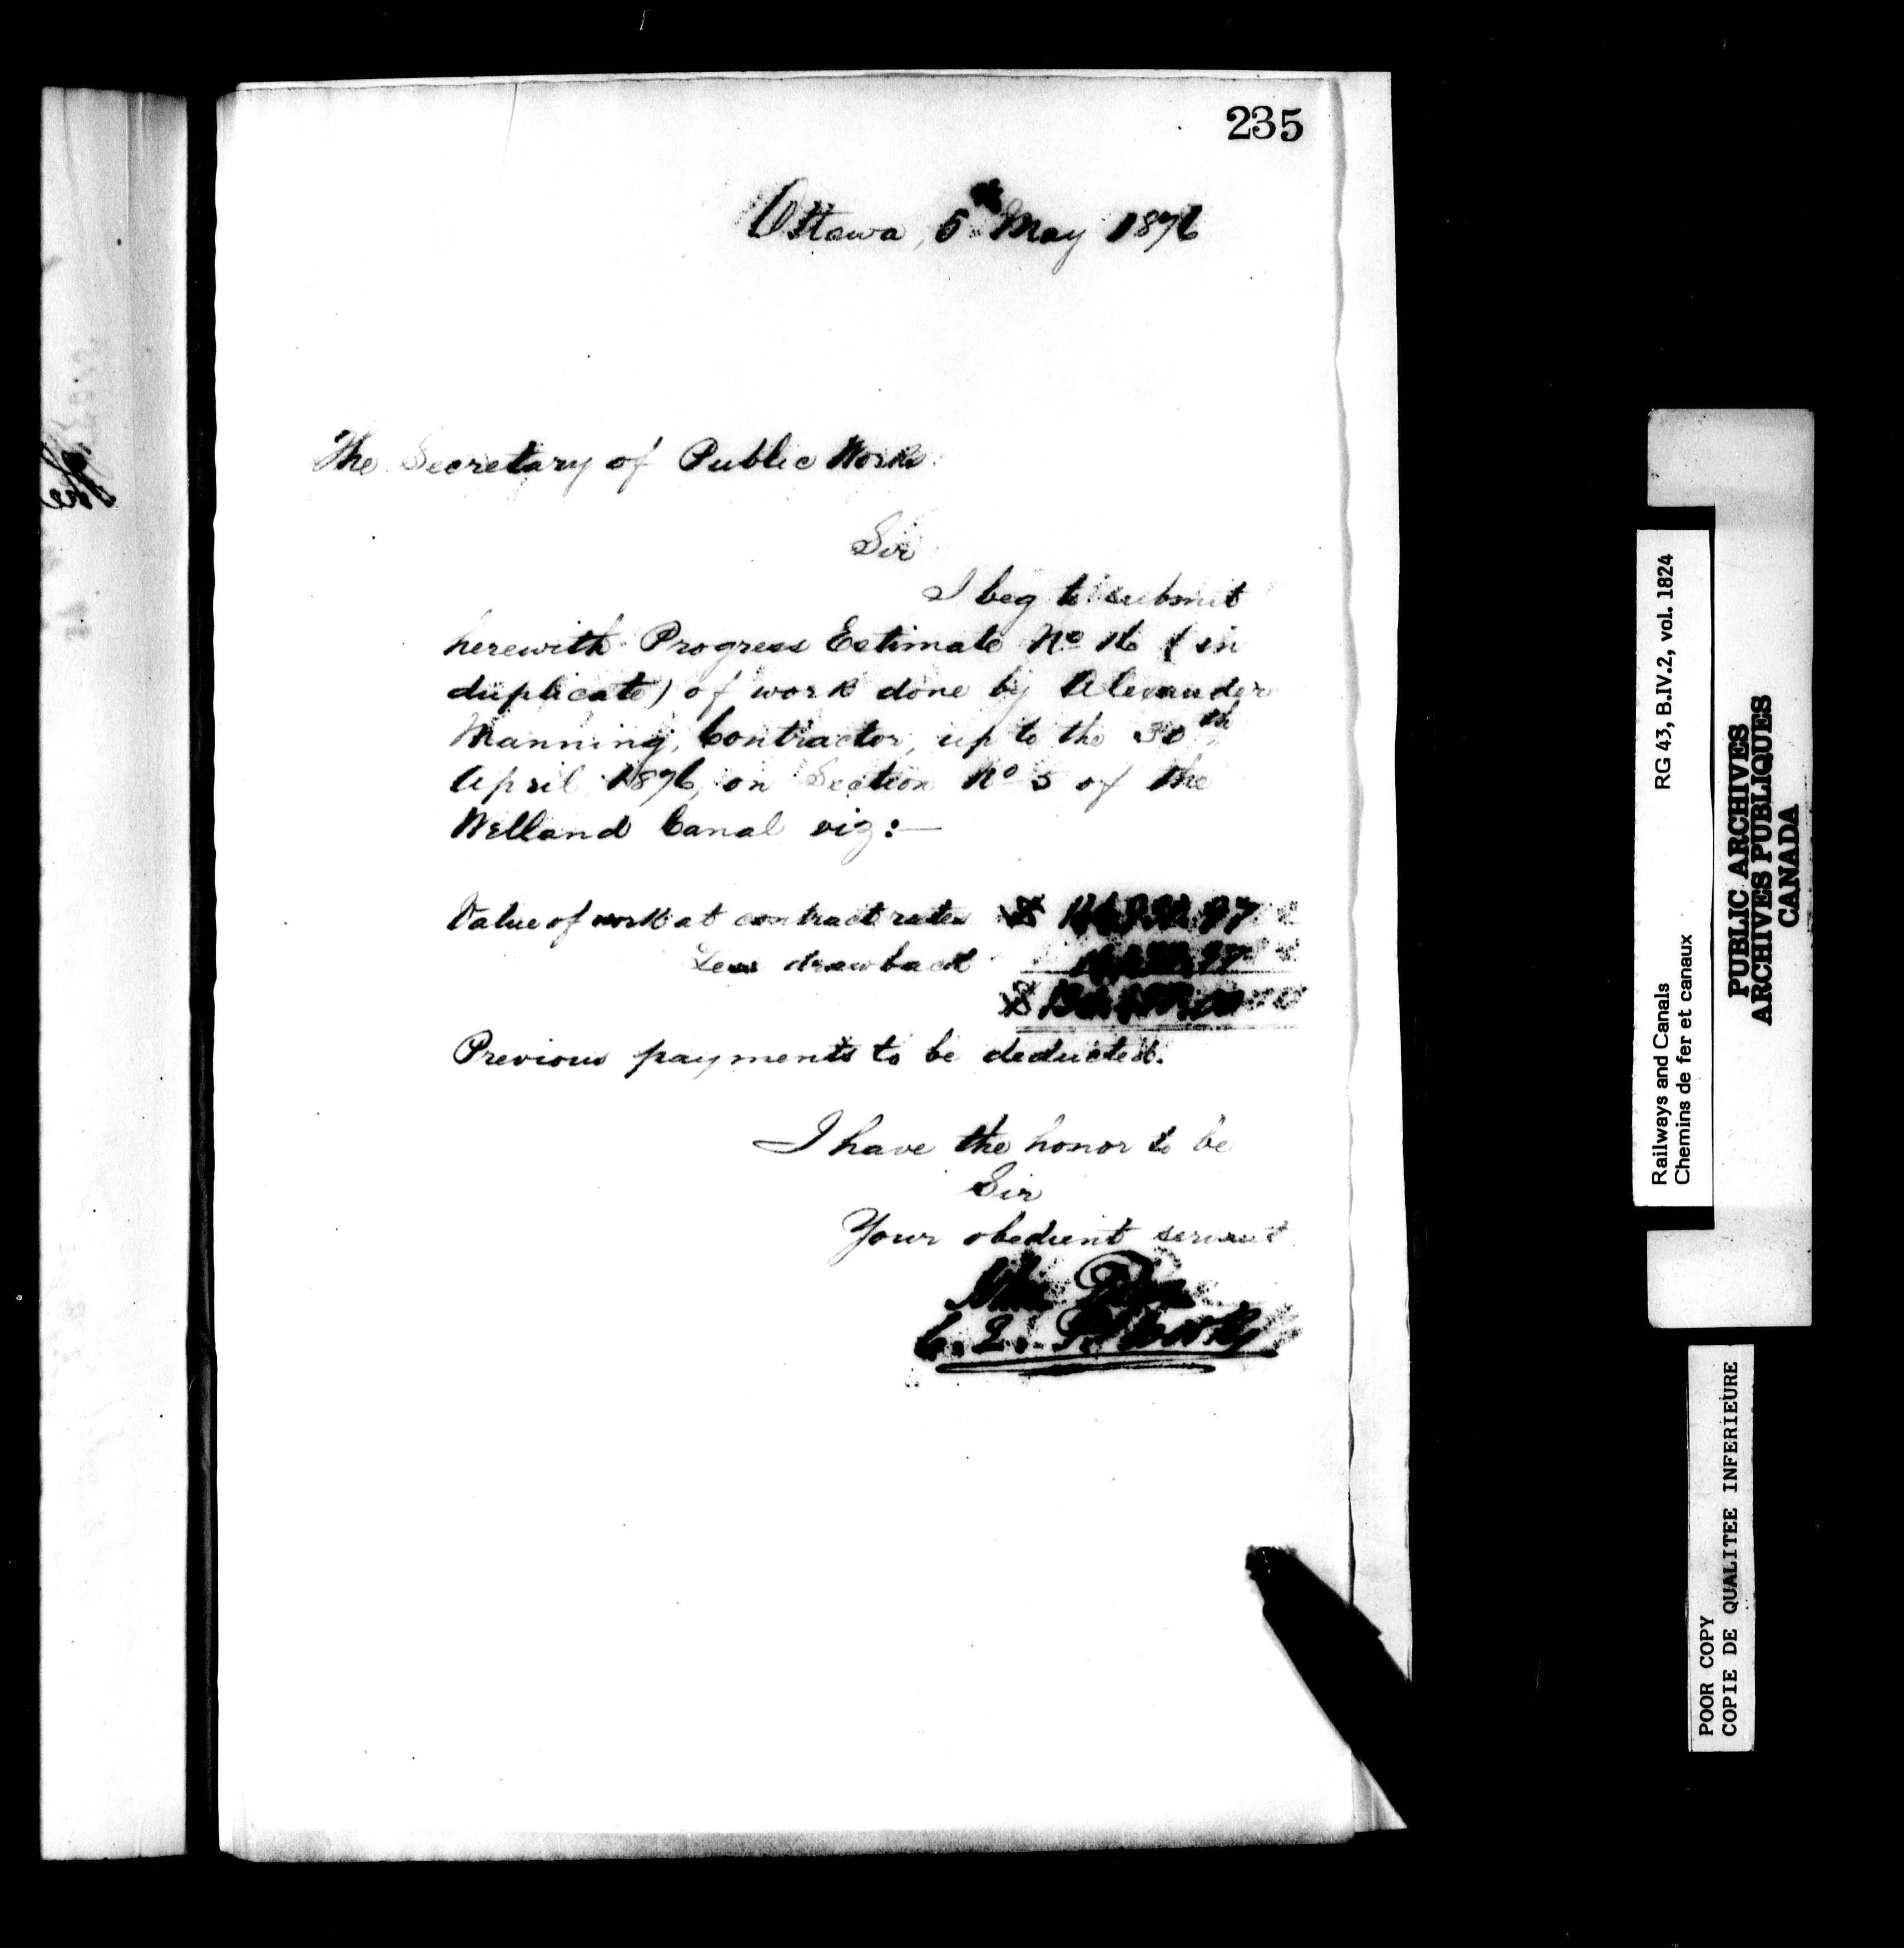 235
Ottawa, 5th May 1876
The Secretary of Public Works
Sir
I beg to submit
herewith Progress Estimate No 16 (in
duplicate) of work done by Alexander
Manning, Contractor, up to the 30th
April 1876, on Section No 5 of the
Welland Canal viz:—
Value of work at contract rates $
Less drawback
$
Previous payments to be deducted.
I have the honor to be
Sir
Your obedient servant
John Page
Railways and Canals RG 43, B.IV.2, vol. 1824
Chemins de fer et canaux
PUBLIC ARCHIVES
ARCHIVES PUBLIQUES
CANADA
POOR COPY
COPIE DE QUALITEE INFERIEURE